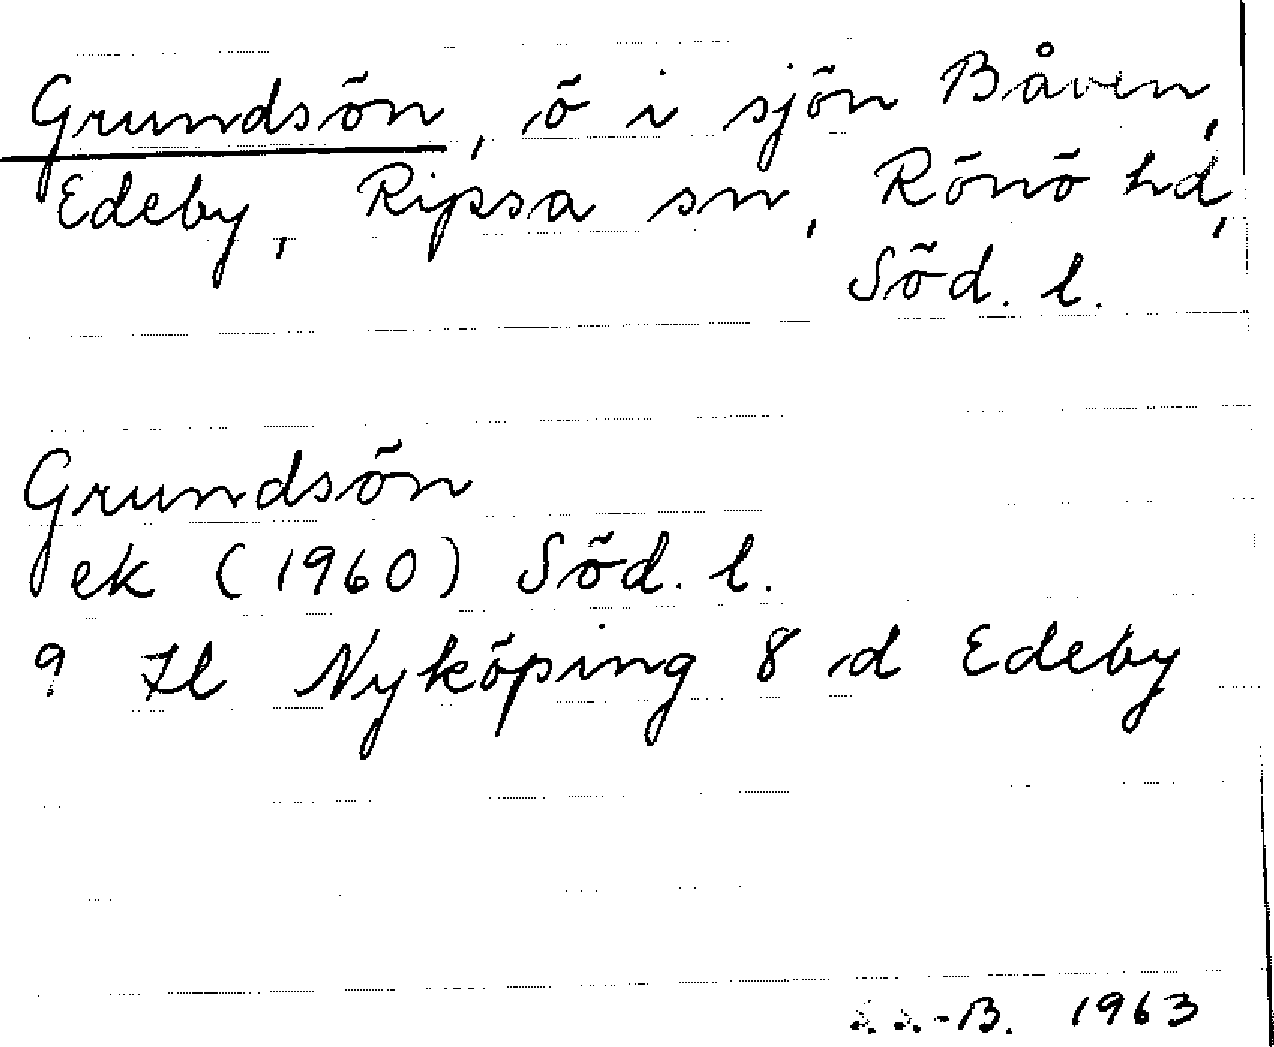 Grundsön, ö i sjön Båven,
Edeby, Ripsa sn, Rönö hd,
Söd. l.
Grundsön
ek (1960) Söd. l.
9 Il Nyköping 8 d Edeby
B. 1963